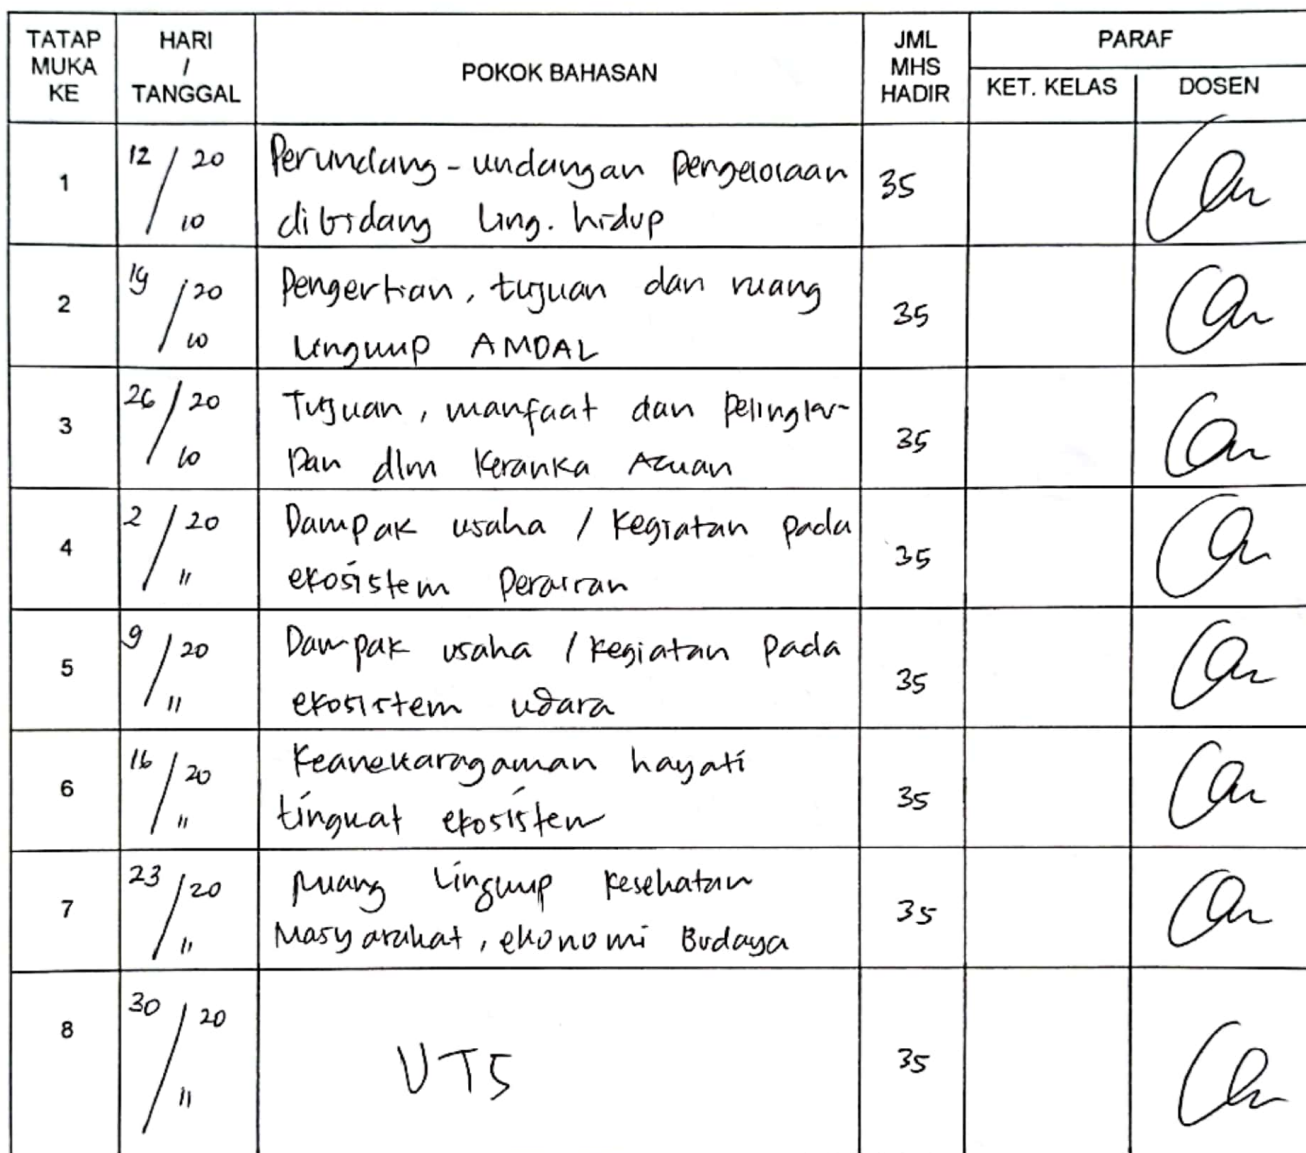 TATAP MUKA KE
HARI / TANGGAL
POKOK BAHASAN
JML MHS HADIR
PARAF
KET. KELAS
DOSEN
1
12 / 20 10
Perundang-undangan Pengelolaan
dibidang Ling. hidup
35
2
19 / 20 10
Pengertian, tujuan dan ruang
Lingkup AMDAL
35
3
26 / 20 10
Tujuan, manfaat dan
Pan dlm Keranka Acuan
35
4
2 / 20 11
Dampak usaha / Kegiatan pada
ekosistem Perairan
35
5
9 / 20 11
Dampak usaha / Kegiatan Pada
ekosistem udara
35
6
16 / 20 11
Keanekaragaman hayati
tingkat ekosistem
35
7
23 / 20 11
Ruang Lingkup Kesehatan
Masyarakat, ekonomi Budaya
35
8
30 / 20 11
UTS
35